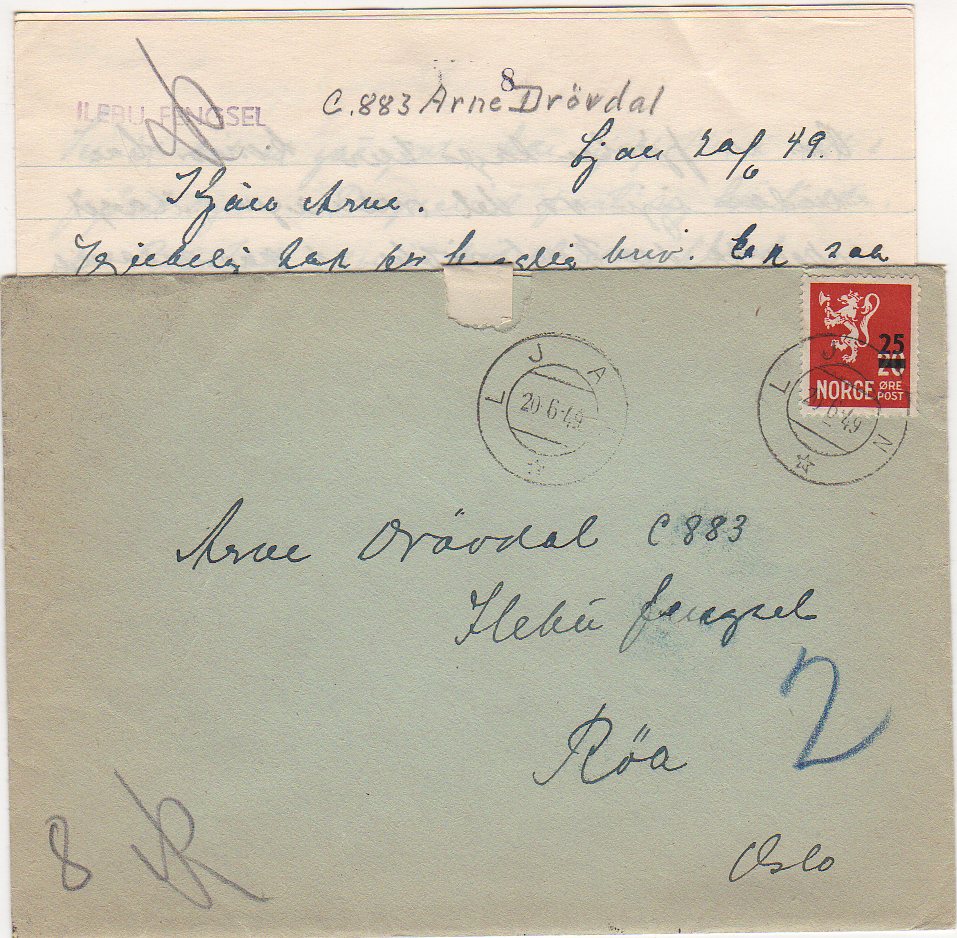 8
ILEBU FENGSEL
C.883 Arne Drövdal
Ljan 20/6 49.
Kjäre Arne.
Hjertelig takk for brev. En
25
20
NORGE ØRE
POST
LJAN
20-6-49
LJAN
20-6-49
Arne Drövdal C 883
Ilebu fengsel
2
Röa
8
Oslo